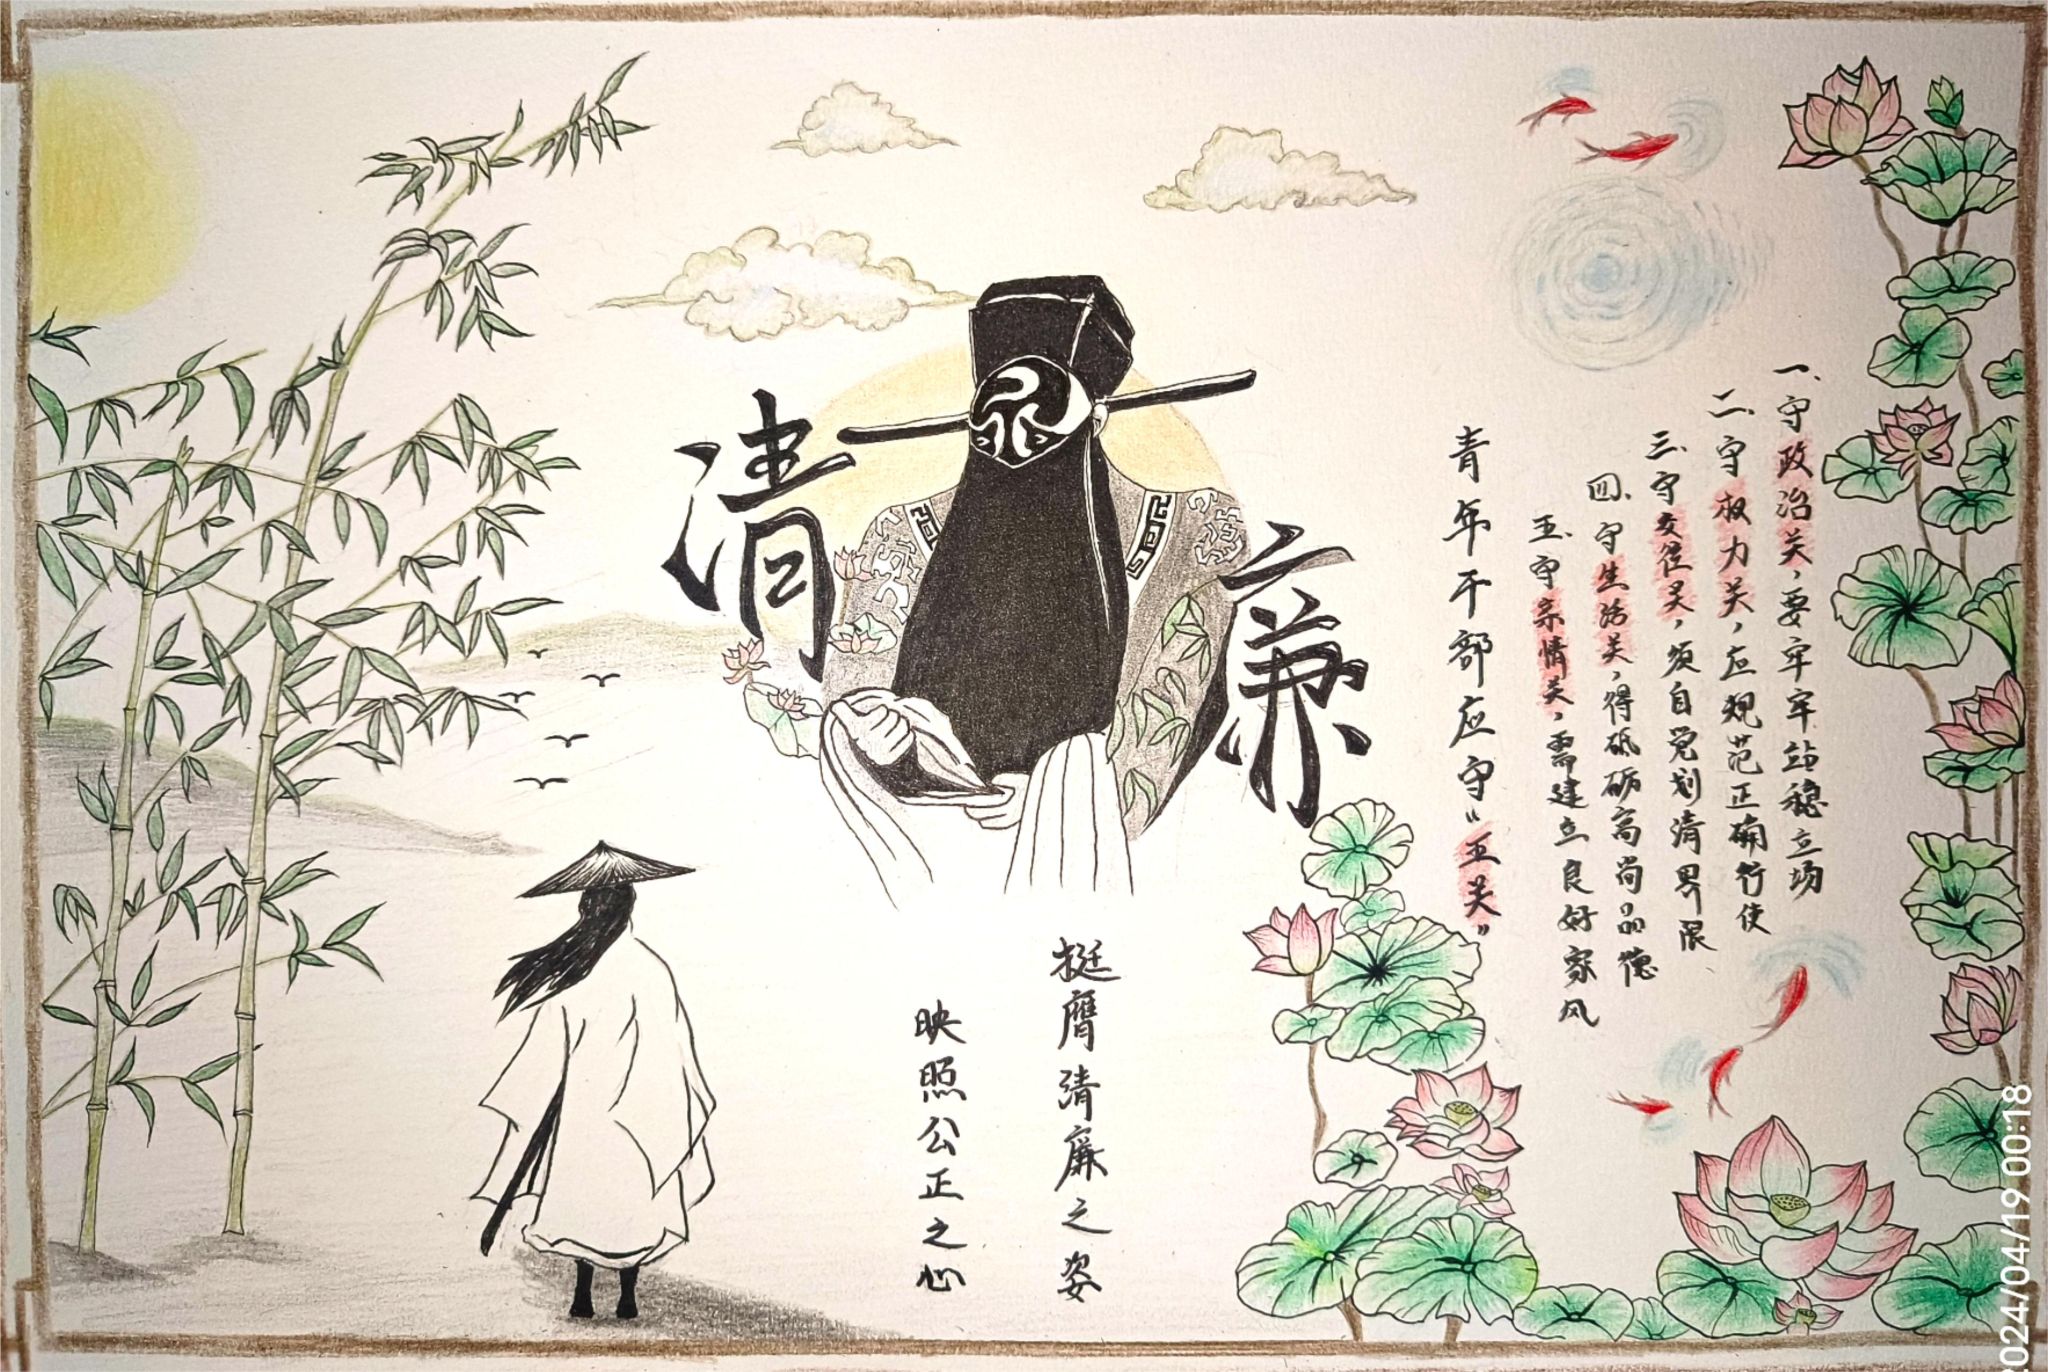 清廉
青年干部应守“五关”
一、守政治关，要牢牢站稳立场
二、守权力关，应规范正确行使
三、守交往关，须自觉划清界限
四、守生活关，得砥砺高尚品德
五、守亲情关，需建立良好家风
挺膺清廉之姿
映照公正之心
024/04/19 00:18